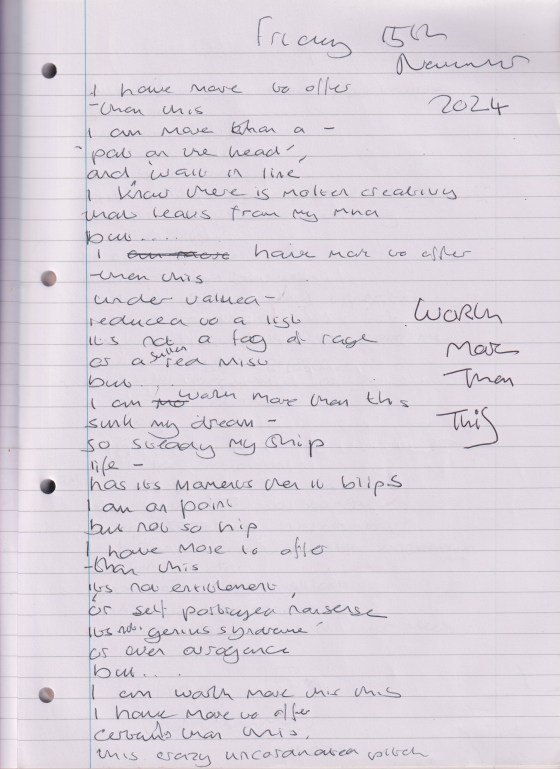 Friday 15th
November
2024
I have more to offer
than this
I am more than a -
'pat on the head',
and 'wait in line'
I know there is molten creativity
that leaks from my mind
but....
I have more to offer
then this
under valued -
reduced to a list
its not a fog of rage
or a sullen red mist
but...
I am worth more than this
sunk my dream -
so steady my ship
life -
has its moments when it blips
I am on point
but not so hip
I have more to offer
than this
its not entitlement,
or self portrayed nonsense
its not 'genius syndrome'
or even arrogance
but....
I am worth more than this
I have more to offer
certainly than this,
this crazy uncoordinated
Worth
More
Than
This